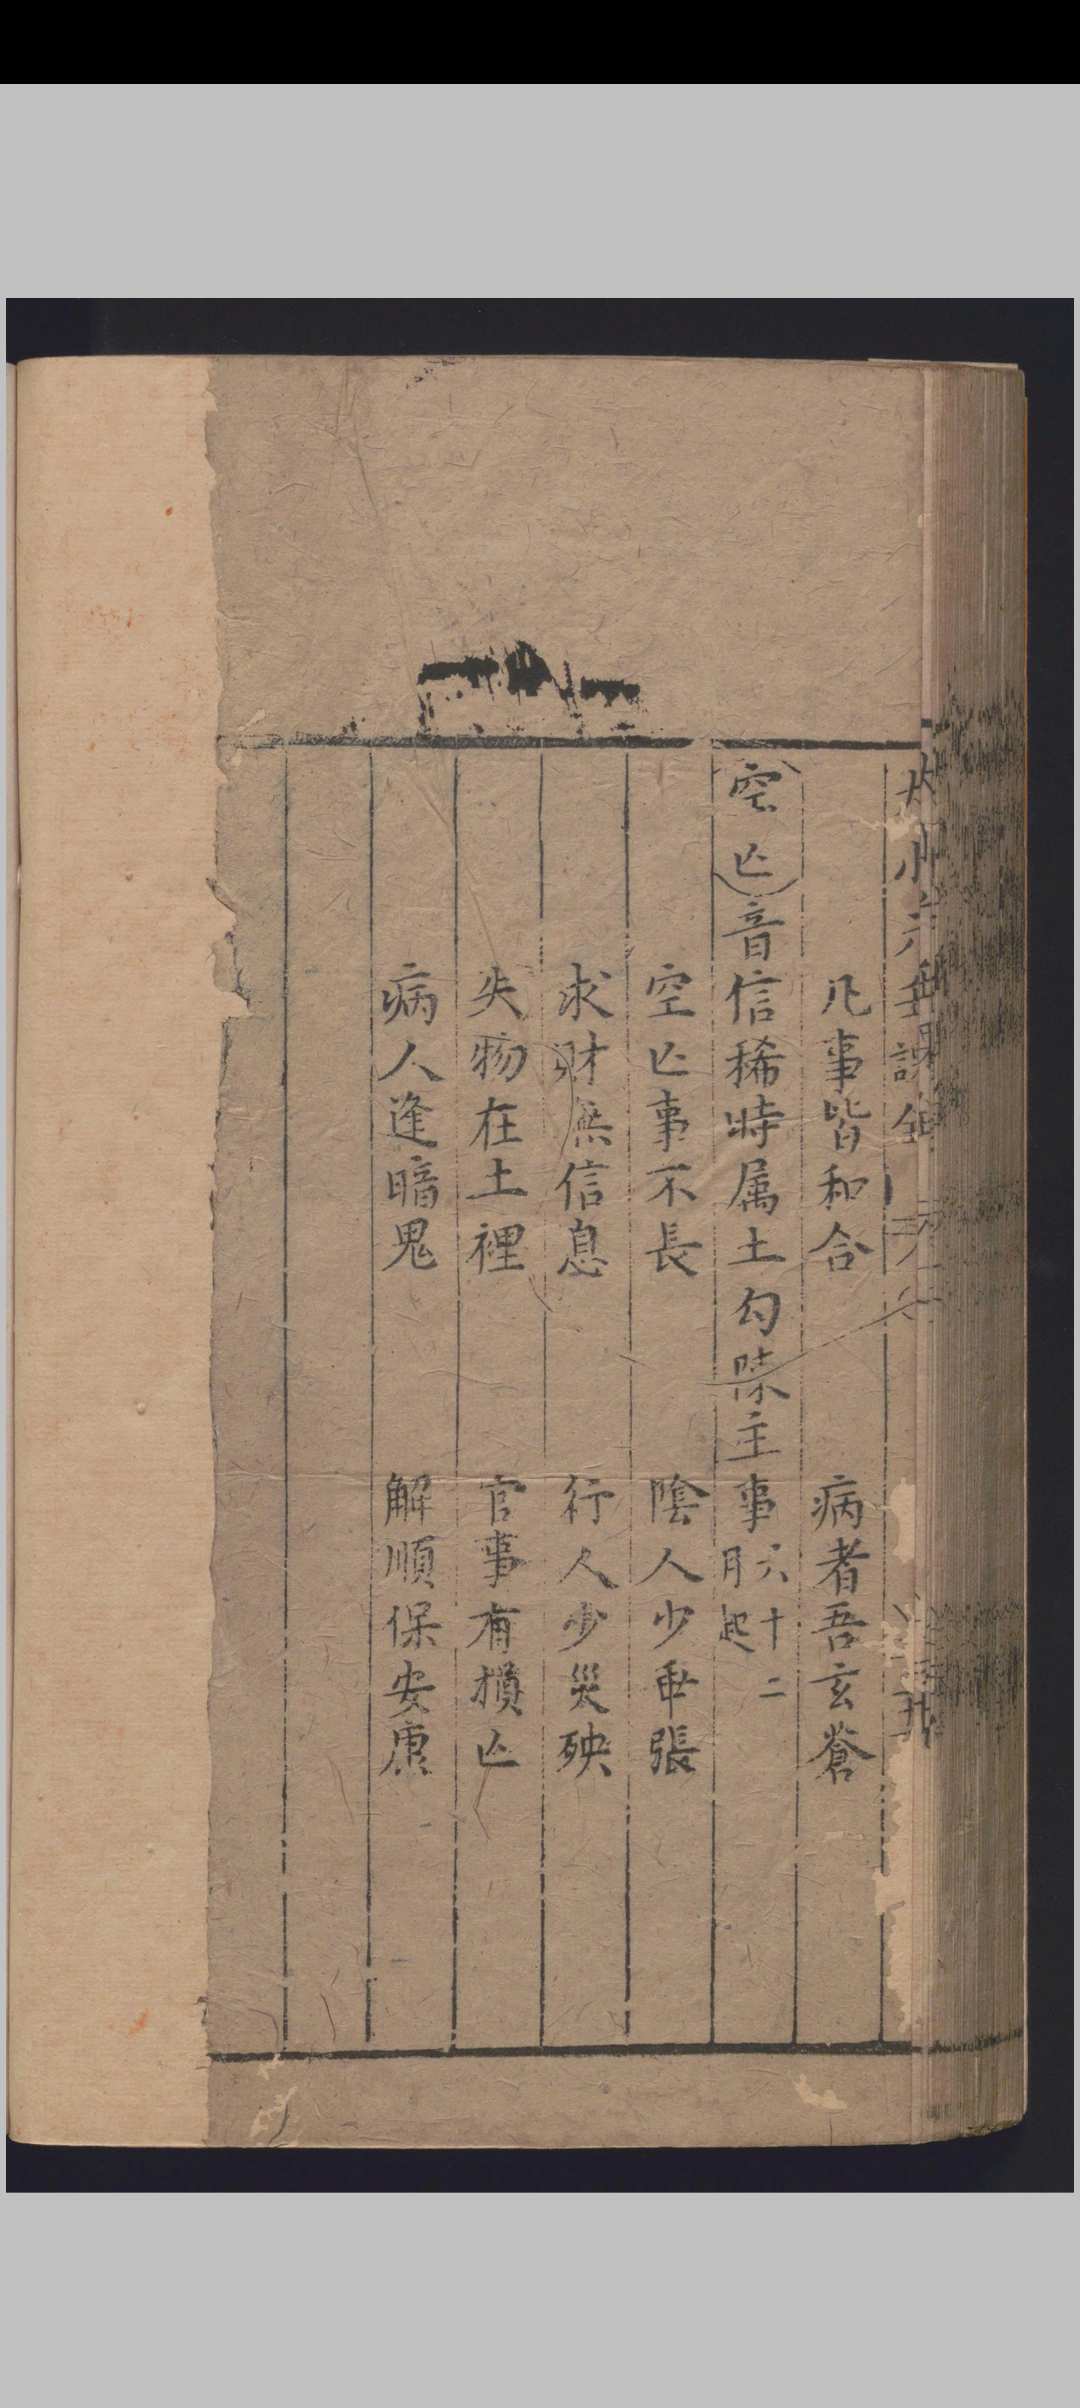 凡事皆和合 病者吾玄蒼
空亡音信稀時属土勾陳主事六十二月起
空亡事不長 陰人少乖張
求財無信息 行人少災殃
失物在土裡 官事有損亡
病人逢暗鬼 解順保安康